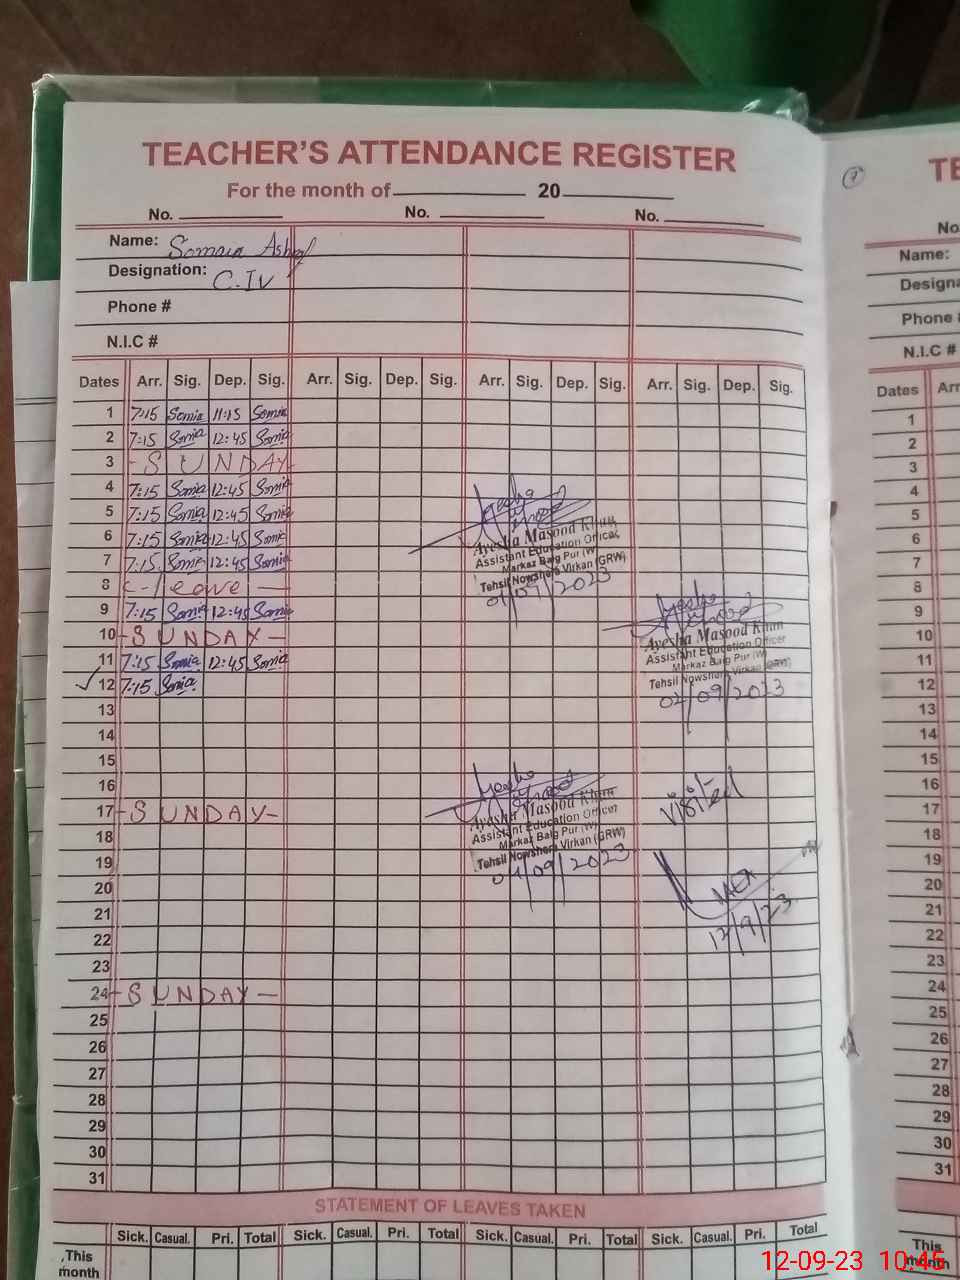 TEACHER'S ATTENDANCE REGISTER
For the month of 20
No. No. No.
Name: Ashraf
Designation: C.IV
Phone #
N.I.C #
Dates Arr. Sig. Dep. Sig. Arr. Sig. Dep. Sig. Arr. Sig. Dep. Sig. Arr. Sig. Dep. Sig.
1 7:15 Somia 11:15 Somia
2 7:15 Somia 12:45 Somia
3 - SUNDAY -
4 7:15 Somia 12:45 Somia
5 7:15 Somia 12:45 Somia
6 7:15 Somia 12:45 Somia
7 7:15 Somia 12:45 Somia
8 C-leave -
9 7:15 Somia 12:45 Somia
10 - SUNDAY -
11 7:15 Somia 12:45 Somia
12 7:15 Somia
13
14
15
16
17 - SUNDAY -
18
19
20
21
22
23
24 - SUNDAY -
25
26
27
28
29
30
31
Ayesha Masood Khan
Assistant Education Officer
Markaz Baig Pur (W)
Tehsil Nowshera Virkan (GRW)
/09/2023
Ayesha Masood Khan
Assistant Education Officer
Markaz Baig Pur (W)
Tehsil Nowshera Virkan (GRW)
/09/2023
Ayesha Masood Khan
Assistant Education Officer
Markaz Baig Pur (W)
Tehsil Nowshera Virkan (GRW)
/09/2023
Visited
MEA
12/9/23
STATEMENT OF LEAVES TAKEN
Sick. Casual. Pri. Total Sick. Casual. Pri. Total Sick. Casual. Pri. Total Sick. Casual. Pri. Total
This
month
7
TE
No
Name:
Designa
Phone #
N.I.C #
Dates Arr
1
2
3
4
5
6
7
8
9
10
11
12
13
14
15
16
17
18
19
20
21
22
23
24
25
26
27
28
29
30
31
This
month
12-09-23 10:45